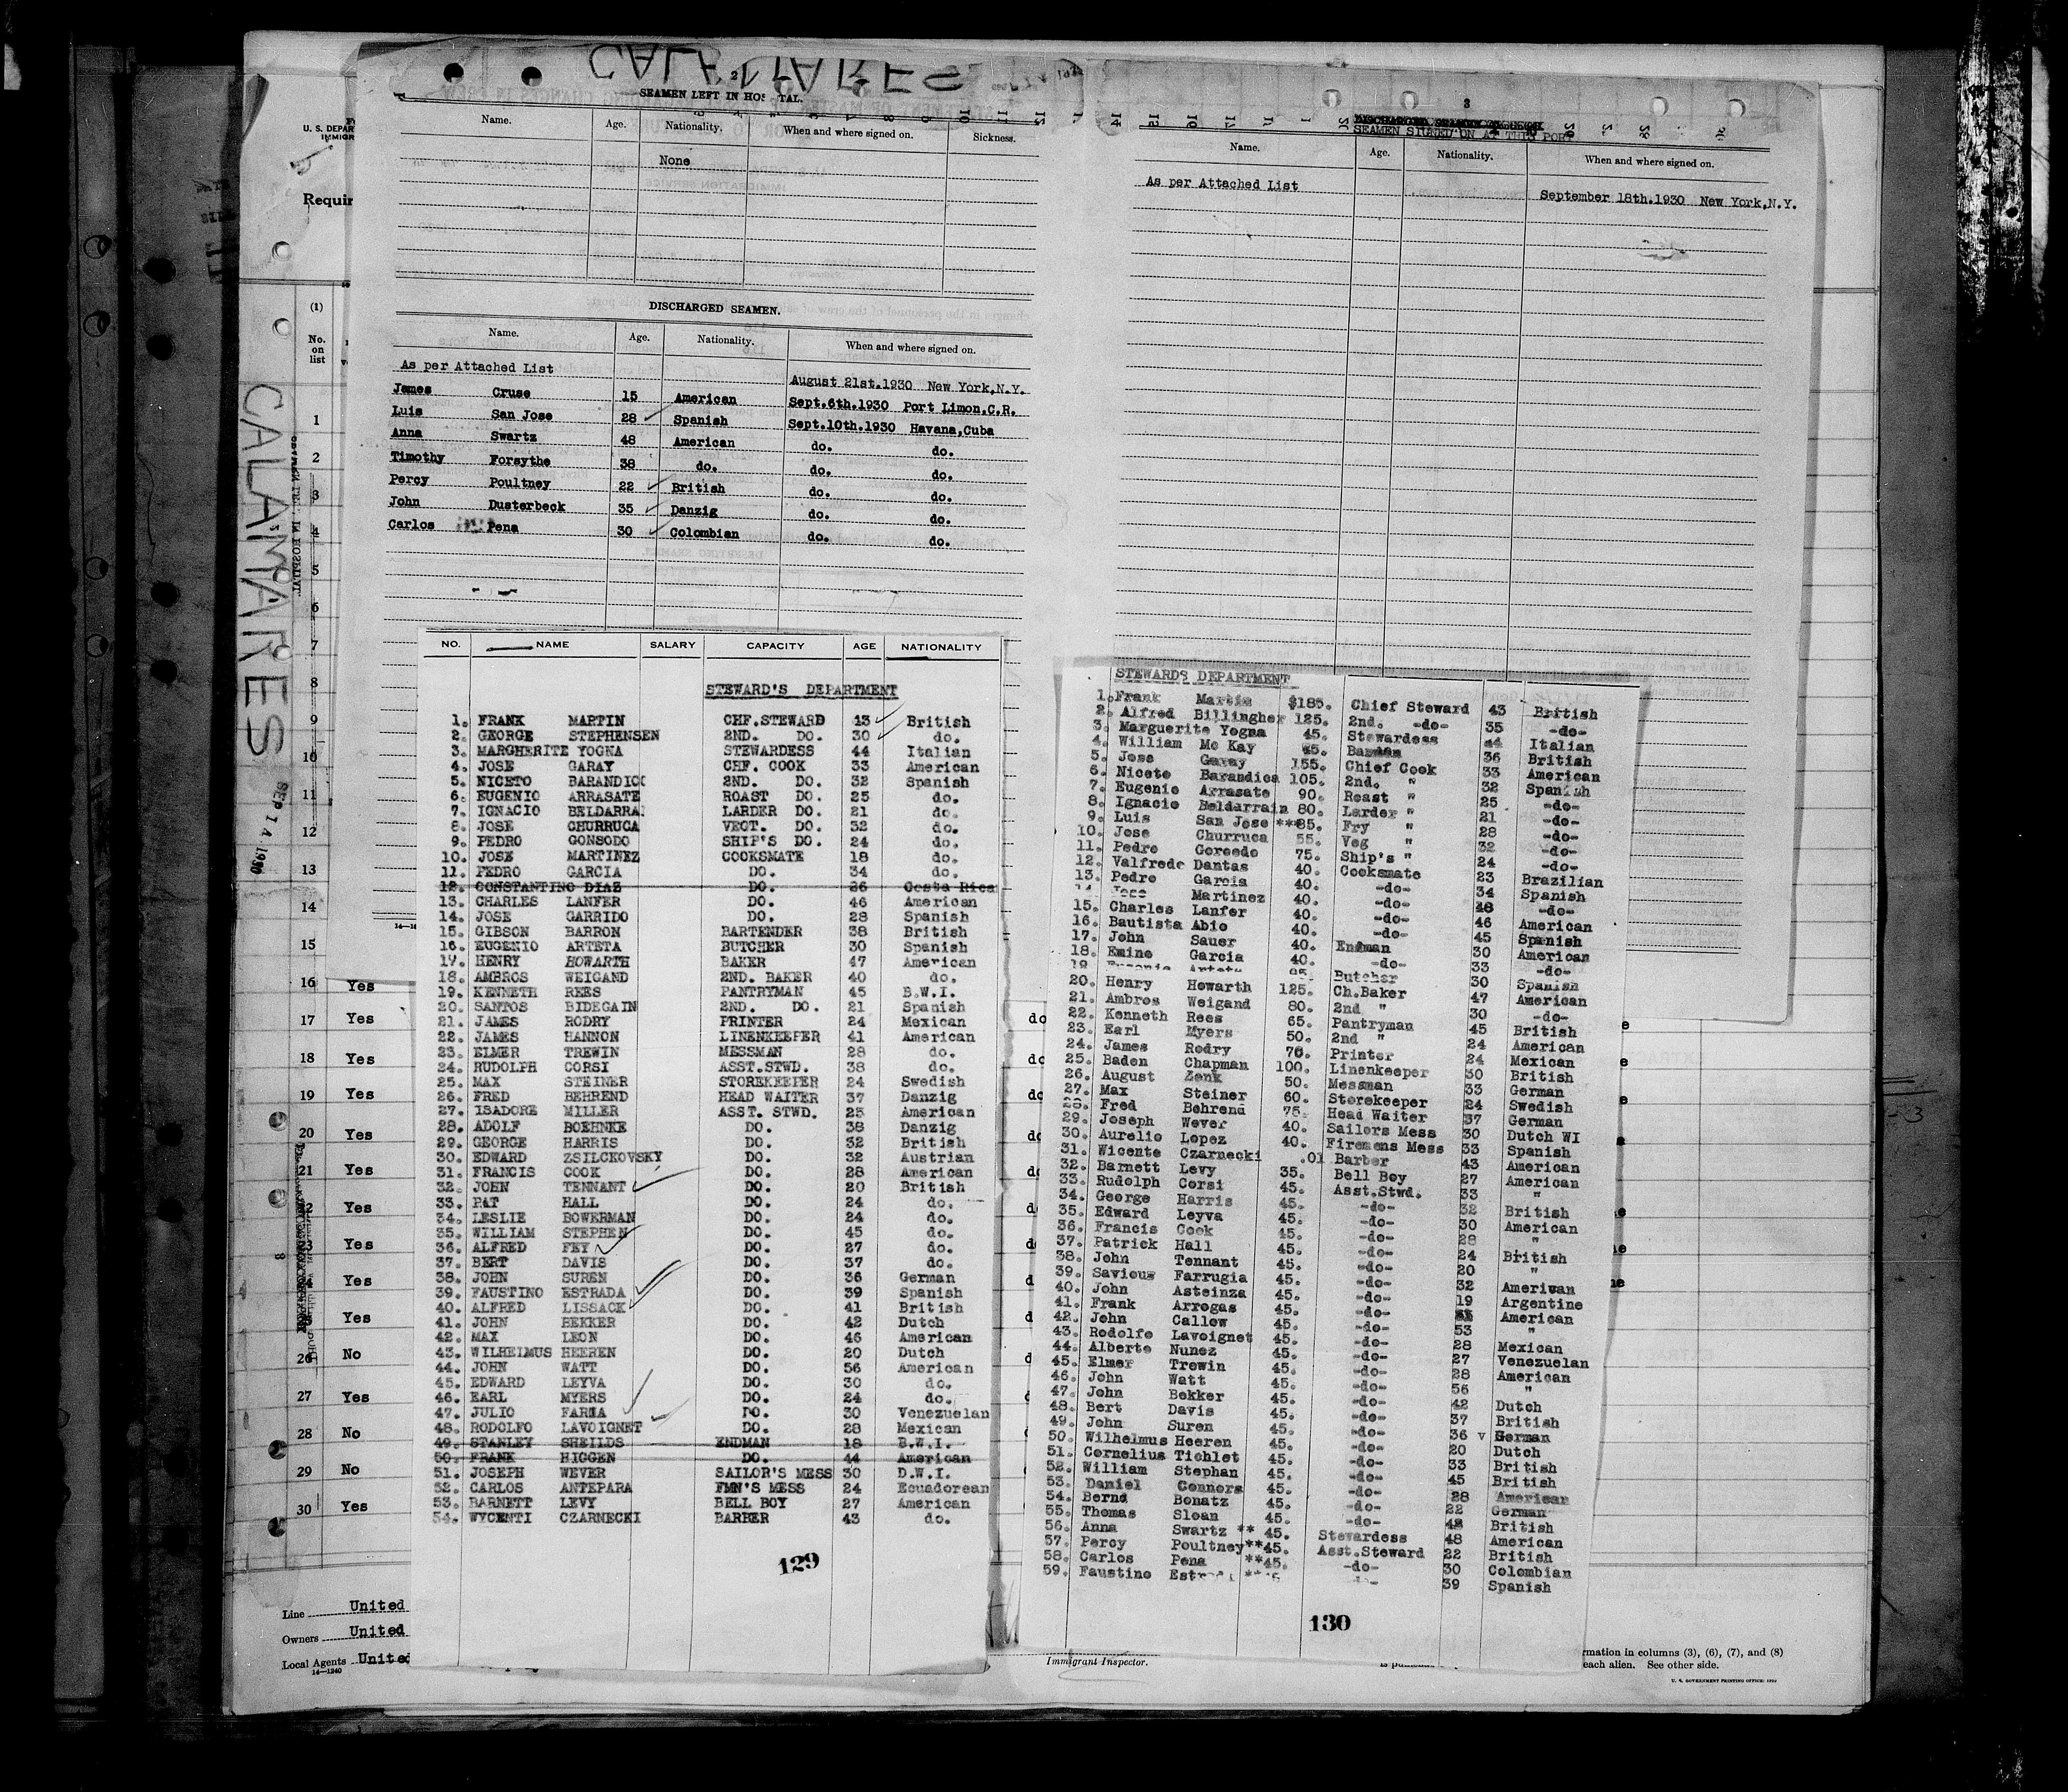 CALAMARES
2
SEAMEN LEFT IN HOS TAL.
Name. Age. Nationality. When and where signed on. Sickness.
None
DISCHARGED SEAMEN.
Name. Age. Nationality. When and where signed on.
As per Attached List August 21st.1930 New York,N.Y.
James Cruse 15 American Sept.6th.1930 Port Limon,C.R.
Luis San Jose 28 Spanish Sept.10th.1930 Havana,Cuba
Anna Swartz 48 American do. do.
Timothy Forsythe 38 do. do. do.
Percy Poultney 22 British do. do.
John Dusterbeck 35 Danzig do. do.
Carlos Pena 30 Colombian do. do.
3
SEAMEN SIGNED ON AT THIS PORT
Name. Age. Nationality. When and where signed on.
As per Attached List September 18th.1930 New York,N.Y.
NO. NAME SALARY CAPACITY AGE NATIONALITY
STEWARD'S DEPARTMENT
1. FRANK MARTIN CHF.STEWARD 43 British
2. GEORGE STEPHENSEN 2ND. DO. 30 do.
3. MARGHERITE YOGNA STEWARDESS 44 Italian
4. JOSE GARAY CHF. COOK 33 American
5. NICETO BARANDICC 2ND. DO. 32 Spanish
6. EUGENIO ARRASATE ROAST DO. 25 do.
7. IGNACIO BELDARRA LARDER DO. 21 do.
8. JOSE CHURRUCA VEGT. DO. 32 do.
9. PEDRO GONSODO SHIP'S DO. 24 do.
10. JOSE MARTINEZ COOKSMATE 18 do.
11. PEDRO GARCIA DO. 34 do.
12. CONSTANTINO DIAZ DO. 26 Costa Rica
13. CHARLES LANFER DO. 46 American
14. JOSE GARRIDO DO. 28 Spanish
15. GIBSON BARRON BARTENDER 38 British
16. EUGENIO ARTETA BUTCHER 30 Spanish
17. HENRY HOWARTH BAKER 47 American
18. AMBROS WEIGAND 2ND. BAKER 40 do.
19. KENNETH REES PANTRYMAN 45 B.W.I.
20. SANTOS BIDEGAIN 2ND. DO. 21 Spanish
21. JAMES RODRY PRINTER 24 Mexican
22. JAMES HANNON LINENKEEPER 41 American
23. ELMER TREWIN MESSMAN 28 do.
24. RUDOLPH CORSI ASST.STWD. 38 do.
25. MAX STEINER STOREKEEPER 24 Swedish
26. FRED BEHREND HEAD WAITER 37 Danzig
27. ISADORE MILLER ASST. STWD. 23 American
28. ADOLF BOEHNKE DO. 38 Danzig
29. GEORGE HARRIS DO. 32 British
30. EDWARD ZSILCKOVSKY DO. 32 Austrian
31. FRANCIS COOK DO. 28 American
32. JOHN TENNANT DO. 20 British
33. PAT HALL DO. 24 do.
34. LESLIE BOWERMAN DO. 24 do.
35. WILLIAM STEPHEN DO. 45 do.
36. ALFRED FEY DO. 27 do.
37. BERT DAVIS DO. 37 do.
38. JOHN SUREN DO. 36 German
39. FAUSTINO ESTRADA DO. 39 Spanish
40. ALFRED LISSACK DO. 41 British
41. JOHN BEKKER DO. 42 Dutch
42. MAX LEON DO. 46 American
43. WILHEIMUS HEEREN DO. 20 Dutch
44. JOHN WATT DO. 56 American
45. EDWARD LEYVA DO. 30 do.
46. EARL MYERS DO. 24 do.
47. JULIO FARIA DO. 30 Venezuelan
48. RODOLFO LAVOIGNET DO. 28 Mexican
49. STANLEY SHEILDS ENDMAN 18 B.W.I.
50. FRANK HIGGEN DO. 44 American
51. JOSEPH WEVER SAILOR'S MESS 30 D.W.I.
52. CARLOS ANTEPARA FMN'S MESS 24 Ecuadorean
53. BARNETT LEVY BELL BOY 27 American
54. WYCENTI CZARNECKI BARBER 43 do.
129
STEWARD'S DEPARTMENT
1. Frank Martin $185. Chief Steward 43 British
2. Alfred Billingher 125. 2nd. -do- 35 -do-
3. Marguerite Yogna 45. Stewardess 44 Italian
4. William Mc Kay 65. Barman 36 British
5. Jose Garay 155. Chief Cook 33 American
6. Niceto Barandica 105. 2nd. " 32 Spanish
7. Eugenio Arrasate 90. Roast " 25 -do-
8. Ignacio Beldarrain 80. Larder " 21 -do-
9. Luis San Jose ***85. Fry " 28 -do-
10. Jose Churruca 55. Veg " 32 -do-
11. Pedro Goroedo 75. Ship's " 24 -do-
12. Valfredo Dantas 40. Cooksmate 23 Brazilian
13. Pedro Garcia 40. -do- 34 Spanish
14 Jose Martinez 40. -do- 18 -do-
15. Charles Lanfer 40. -do- 46 American
16. Bautista Abio 40. -do- 45 Spanish
17. John Sauer 40. Endman 30 American
18. Emine Garcia 40. -do- 33 -do-
19 Butcher 30 Spanish
20. Henry Howarth 125. Ch.Baker 47 American
21. Ambros Weigand 80. 2nd " 30 -do-
22. Kenneth Rees 65. Pantryman 45 British
23. Earl Myers 50. 2nd " 24 American
24. James Rodry 70. Printer 24 Mexican
25. Baden Chapman 100. Linenkeeper 30 British
26. August Zenk 50. Messman 33 German
27. Max Steiner 60. Storekeeper 24 Swedish
28. Fred Behrend 75. Head Waiter 37 German
29. Joseph Wever 40. Sailors Mess 30 Dutch WI
30. Aurelio Lopez 40. Firemens Mess 33 Spanish
31. Wicente Czarnecki .01 Barber 43 American
32. Barnett Levy 35. Bell Boy 27 American
33. Rudolph Corsi 45. Asst.Stwd. 33 "
34. George Harris 45. -do- 32 British
35. Edward Leyva 45. -do- 30 American
36. Francis Cook 45. -do- 28 "
37. Patrick Hall 45. -do- 24 British
38. John Tennant 45. -do- 20 "
39. Saviour Farrugia 45. -do- 32 American
40. John Asteinza 45. -do- 19 Argentine
41. Frank Arrogas 45. -do- American
42. John Callow 45. -do- 53 "
43. Rodolfo Lavoignet 45. -do- 28 Mexican
44. Alberto Nunez 45. -do- 27 Venezuelan
45. Elmer Trewin 45. -do- 28 American
46. John Watt 45. -do- 56 "
47. John Bekker 45. -do- 42 Dutch
48. Bert Davis 45. -do- 37 British
49. John Suren 45. -do- 36 v German
50. Wilhelmus Heeren 45. -do- 20 Dutch
51. Cornelius Tichlet 45. -do- 33 British
52. William Stephan 45. -do- 45 British
53. Daniel Connors 45. -do- 28 American
54. Bernd Bonatz 45. -do- 22 German
55. Thomas Sloan 45. -do- British
56. Anna Swartz ** 45. Stewardess 48 American
57. Percy Poultney**45. Asst.Steward 22 British
58. Carlos Pena **45. -do- 30 Colombian
59. Faustino 39 Spanish
130
U. S. DEPAR
IMMIGR
Requir
(1)
No.
on
list
1
2
3
4
5
6
7
8
9
10
11
12
13
14
15
16 Yes
17 Yes
18 Yes
19 Yes
20 Yes
21 Yes
22 Yes
23 Yes
24 Yes
Yes
26 No
27 Yes
28 No
29 No
30 Yes
CALAMARES
SEP 14 1930
Line United
Owners United
Local Agents United
14-1240
Immigrant Inspector.
rmation in columns (3), (6), (7), and (8)
each alien. See other side.
U. S. GOVERNMENT PRINTING OFFICE: